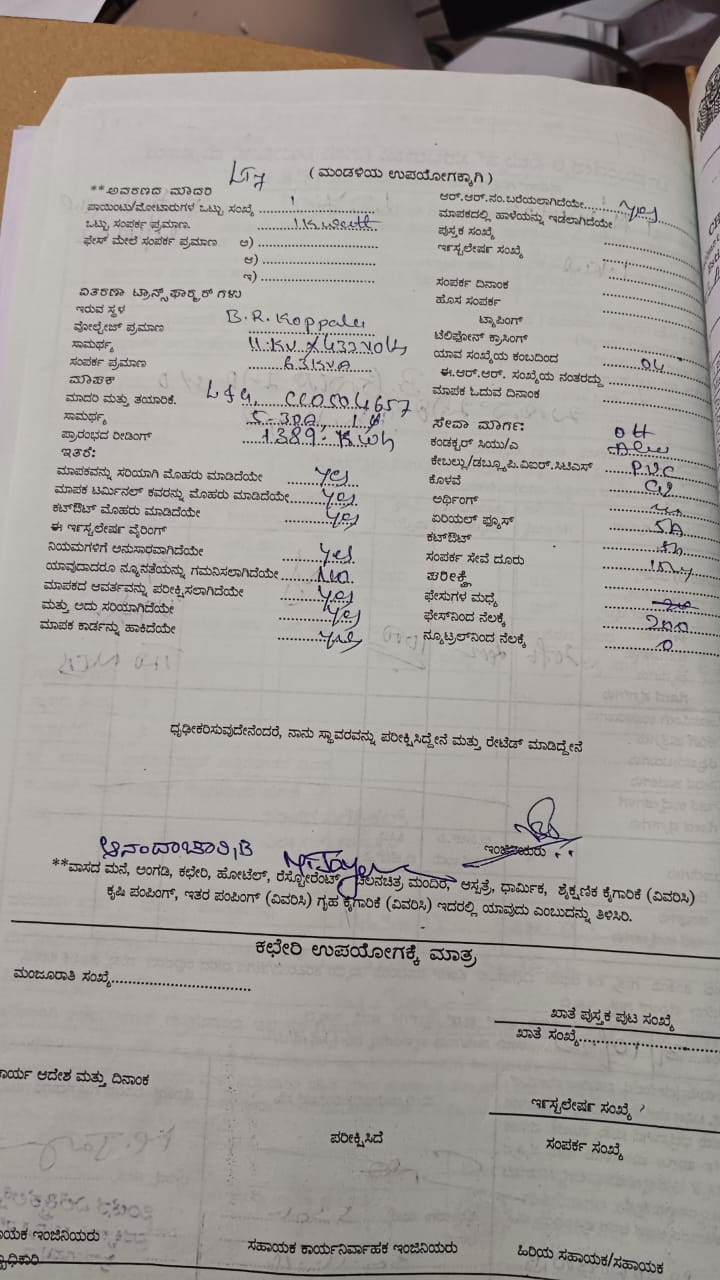 LT7 ( ಮಂಡಳಿಯ ಉಪಯೋಗಕ್ಕಾಗಿ )
**ಆವರಣದ ಮಾದರಿ
ಪಾಯಿಂಟು/ಮೋಟಾರುಗಳ ಒಟ್ಟು ಸಂಖ್ಯೆ 1
ಒಟ್ಟು ಸಂಪರ್ಕ ಪ್ರಮಾಣ.
ಫೇಸ್ ಮೇಲೆ ಸಂಪರ್ಕ ಪ್ರಮಾಣ ಅ)
ಆ)
ಇ)
ವಿತರಣಾ ಟ್ರಾನ್ಸ್‌ಫಾರ್ಮರ್ ಗಳು
ಇರುವ ಸ್ಥಳ B.R. Koppalu
ವೋಲ್ಟೇಜ್ ಪ್ರಮಾಣ
ಸಾಮರ್ಥ್ಯ 11 KV X 433 Volts
ಸಂಪರ್ಕ ಪ್ರಮಾಣ 63 KVA
ಮಾಪಕ
ಮಾದರಿ ಮತ್ತು ತಯಾರಿಕೆ. L&G,
ಸಾಮರ್ಥ್ಯ 5-30A,
ಪ್ರಾರಂಭದ ರೀಡಿಂಗ್ 1389 - Kwh
ಇತರೆ:
ಮಾಪಕವನ್ನು ಸರಿಯಾಗಿ ಮೊಹರು ಮಾಡಿದೆಯೇ yes
ಮಾಪಕ ಟರ್ಮಿನಲ್ ಕವರನ್ನು ಮೊಹರು ಮಾಡಿದೆಯೇ yes
ಕಟ್‌ಔಟ್ ಮೊಹರು ಮಾಡಿದೆಯೇ yes
ಈ ಇನ್‌ಸ್ಟಲೇಷನ್ ವೈರಿಂಗ್
ನಿಯಮಗಳಿಗೆ ಅನುಸಾರವಾಗಿದೆಯೇ yes
ಯಾವುದಾದರೂ ನ್ಯೂನತೆಯನ್ನು ಗಮನಿಸಲಾಗಿದೆಯೇ No
ಮಾಪಕದ ಆವರ್ತವನ್ನು ಪರೀಕ್ಷಿಸಲಾಗಿದೆಯೇ yes
ಮತ್ತು ಅದು ಸರಿಯಾಗಿದೆಯೇ yes
ಮಾಪಕ ಕಾರ್ಡನ್ನು ಹಾಕಿದೆಯೇ yes
ಆರ್.ಆರ್.ನಂ.ಬರೆಯಲಾಗಿದೆಯೇ yes
ಮಾಪಕದಲ್ಲಿ ಹಾಳೆಯನ್ನು ಇಡಲಾಗಿದೆಯೇ
ಪುಸ್ತಕ ಸಂಖ್ಯೆ
ಇನ್‌ಸ್ಟಲೇಷನ್ ಸಂಖ್ಯೆ
ಸಂಪರ್ಕ ದಿನಾಂಕ
ಹೊಸ ಸಂಪರ್ಕ
ಟ್ಯಾಪಿಂಗ್
ಟೆಲಿಫೋನ್ ಕ್ರಾಸಿಂಗ್
ಯಾವ ಸಂಖ್ಯೆಯ ಕಂಬದಿಂದ 04
ಈ.ಆರ್.ಆರ್. ಸಂಖ್ಯೆಯ ನಂತರದ್ದು
ಮಾಪಕ ಓದುವ ದಿನಾಂಕ
ಸೇವಾ ಮಾರ್ಗ: OH
ಕಂಡಕ್ಟರ್ ಸಿಯು/ಎ
ಕೇಬಲ್ಲು/ಡಬ್ಲ್ಯೂಪಿ.ವಿಐಆರ್.ಸಿಟಿಎಸ್ P.V.C
ಕೊಳವೆ GI
ಅರ್ಥಿಂಗ್
ಏರಿಯಲ್ ಫ್ಯೂಸ್ 5A
ಕಟ್‌ಔಟ್
ಸಂಪರ್ಕ ಸೇವೆ ದೂರು
ಪರೀಕ್ಷೆ
ಫೇಸುಗಳ ಮಧ್ಯೆ
ಫೇಸ್‌ನಿಂದ ನೆಲಕ್ಕೆ 200
ನ್ಯೂಟ್ರಲ್‌ನಿಂದ ನೆಲಕ್ಕೆ 0
ಧೃಢೀಕರಿಸುವುದೇನೆಂದರೆ, ನಾನು ಸ್ಥಾವರವನ್ನು ಪರೀಕ್ಷಿಸಿದ್ದೇನೆ ಮತ್ತು ರೇಟೆಡ್ ಮಾಡಿದ್ದೇನೆ
ಆನಂದಾಚಾರಿ,B ಇಂಜಿನಿಯರು
**ವಾಸದ ಮನೆ, ಅಂಗಡಿ, ಕಛೇರಿ, ಹೋಟೆಲ್, ರೆಸ್ಟೋರೆಂಟ್, ಚಲನಚಿತ್ರ ಮಂದಿರ, ಆಸ್ಪತ್ರೆ, ಧಾರ್ಮಿಕ, ಶೈಕ್ಷಣಿಕ ಕೈಗಾರಿಕೆ (ವಿವರಿಸಿ)
ಕೃಷಿ ಪಂಪಿಂಗ್, ಇತರ ಪಂಪಿಂಗ್ (ವಿವರಿಸಿ) ಗೃಹ ಕೈಗಾರಿಕೆ (ವಿವರಿಸಿ) ಇದರಲ್ಲಿ ಯಾವುದು ಎಂಬುದನ್ನು ತಿಳಿಸಿರಿ.
ಕಛೇರಿ ಉಪಯೋಗಕ್ಕೆ ಮಾತ್ರ
ಮಂಜೂರಾತಿ ಸಂಖ್ಯೆ
ಖಾತೆ ಪುಸ್ತಕ ಪುಟ ಸಂಖ್ಯೆ
ಖಾತೆ ಸಂಖ್ಯೆ
ಾರ್ಯ ಆದೇಶ ಮತ್ತು ದಿನಾಂಕ
ಇನ್‌ಸ್ಟಲೇಷನ್ ಸಂಖ್ಯೆ
ಪರೀಕ್ಷಿಸಿದೆ
ಸಂಪರ್ಕ ಸಂಖ್ಯೆ
ಾಯಕ ಇಂಜಿನಿಯರು
ಸಹಾಯಕ ಕಾರ್ಯನಿರ್ವಾಹಕ ಇಂಜಿನಿಯರು
ಹಿರಿಯ ಸಹಾಯಕ/ಸಹಾಯಕ